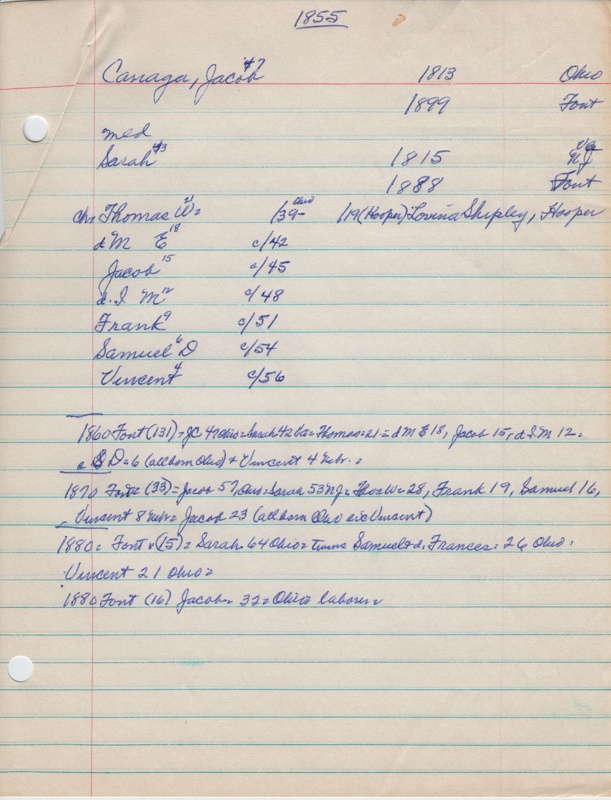 1855
Canaga, Jacob 47 1813 Ohio
1899 Font
med
Sarah 43 1815 Va NJ
1888 Font
chs Thomas W= 21 /39- Ohio /19(Hooper) Lovina Shipley, Hooper
d M E 18 c/42
Jacob 15 c/45
d. I M 12 c/48
Frank 9 c/51
Samuel D 6 c/54
Vincent 4 c/56
1860 Font (131) = JC 47 Ohio = Sarah 42 Va = Thomas = 21 = d M E 18, Jacob 15, d I M 12 =
S D = 6 (all born Ohio) + Vincent 4 Nebr. =
1870 Font (33) = Jacob 57, Ohio = Sarah 53 NJ = Thos W = 28, Frank 19, Samuel 16,
Vincent 8 Nebr = Jacob 23 (all born Ohio exc Vincent)
1880 = Font (15) = Sarah 64 Ohio = twins Samuel & d. Frances = 26 Ohio =
Vincent 21 Ohio =
1880 Font (16) Jacob = 32 = Ohio = laborer =